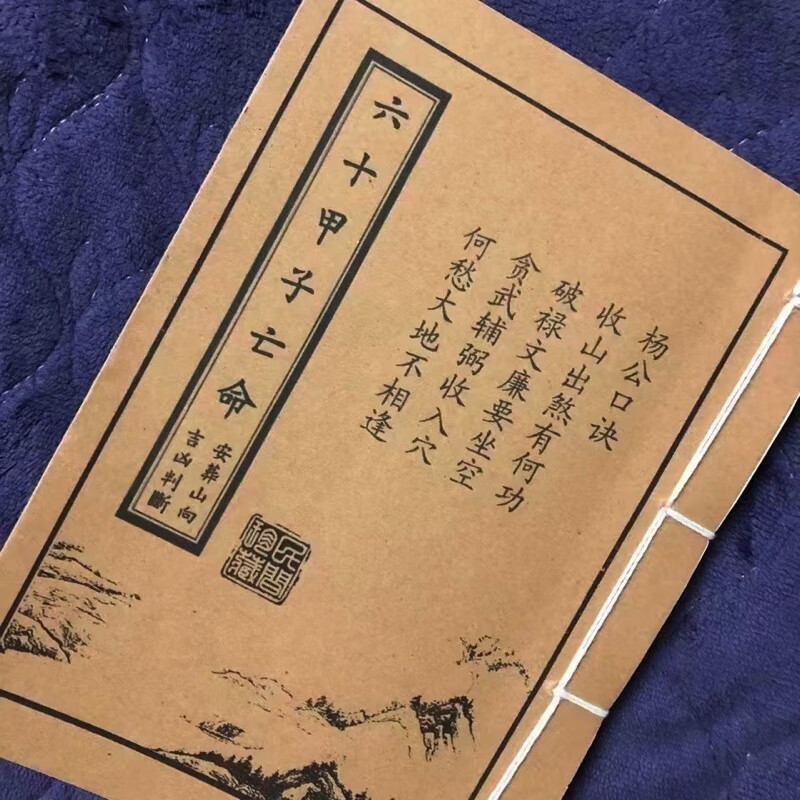 杨公口诀
收山出煞有何功
破禄文廉要坐空
贪武辅弼收入穴
何愁大地不相逢
六十甲子亡命
安葬山向
吉凶判斷
民間
珍藏